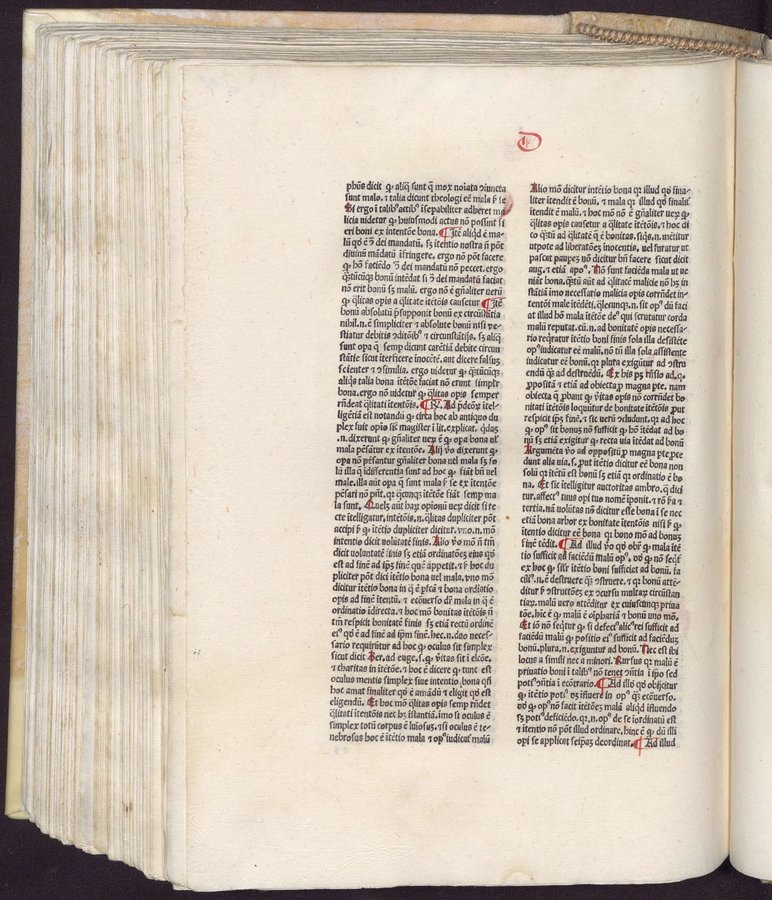 D
phūs dicit ꝙ aliq̄ sunt q̄ mox noīata ɔiuncta
sunt malo. ⁊ talia dicunt theologi eē mala ꝑ se
Si ergo ī talibꝰ actibꝰ īsepabiliter adheret ma
licia uidetur ꝙ huiusmodi actus nō possint fi
eri boni ex intentōe bona. ¶ Itē aliqd ē ma
lū qꝺ ē ꝯ dei mandatū. sꝫ itentio nostra n̄ pōt
diuinū mādatū īfringere. ergo nō pōt facere
ꝙ hō faciēdo ꝯ dei mandatū nō peccet. ergo
qͣtūcūqꝫ bonū intēdat si ꝯ dei mandatū faciat
nō erit bonū sꝫ malū. ergo nō ē gn̄aliter uerū
ꝙ q̄litas opis a q̄litate itētōis causetur ¶ Itē
bonū absolutū p̄supponit bonū ex circūstātia
nihil .n. ē simpliciter ⁊ absolute bonū nisi ve-
stiatur debitis ɔditōibꝰ ⁊ circunstātijs. sꝫ aliq̄
sunt opa q̄ semp dicunt carētiā debite circun
stātie sicut īterficere īnocētē. aut dicere falsuꝫ
scienter ⁊ ɔsimilia. ergo uidetur ꝙ qͣtūcūqꝫ
aliqͥs talia bona itētōe faciat nō erunt simplr̄
bona. ergo nō uidetur ꝙ q̄litas opis semper
rn̄deat q̄litati itentōis. ¶ R̄. Ad p̄dcōꝝ itel-
ligētiā est notandū ꝙ circa hoc ab antiquo du
plex fuit opio sic̄ magister ī lit. explicat. qͥdaꝫ
.n. dixerunt ꝙ gn̄aliter ueꝝ ē ꝙ opa bona uł
mala pēsātur ex itentōe. Alij v̄o dixerunt ꝙ
opa nō pēsantur gn̄aliter bona uel mala sꝫ so
lū illa q̄ īdifferentia sunt ad hoc ꝙ fiāt bn̄ uel
male. illa aūt opa q̄ sunt mala ꝑ se ex itentōe
pēsari nō pn̄t. qꝛ qͣcunqꝫ itētōe fiāt semp ma
la sunt. Quelꝫ aūt haꝝ opionū ueꝝ dicit si re
cte itelligatur. intētōis .n. q̄litas dupliciter pōt
accipi ꝑ ꝙ itētio dupliciter dicitur. vno .n. mō
intentio dicit uolūtatē finis. Alio v̄o mō n̄ tm̄
dicit uoluntatē finis sꝫ etiā ordinatōeꝫ eius qꝺ
est ad finē ad ip̄ꝫ finē quē appetit. ⁊ ꝑ hoc du
pliciter pōt dici itētio bona uel mala. vno mō
dicitur itētio bona in q̄ ē p̄tcā ⁊ bona ordiatio
opis ad finē itentū. ⁊ ecōuerso dr̄ mala in q̄ ē
ordinatio īdirecta. ⁊ hoc mō bonitas itētōis n̄
tm̄ respicit bonitatē finis sꝫ etiā rectū ordinē
eiꝰ qꝺ ē ad finē ad ip̄m finē. hec .n. duo neces-
sario requirūtur ad hoc ꝙ oculus sit simplex
sicut dicit Ber. ad euge. s. ꝙ v̄itas sit ī elcōe.
⁊ charitas in itētōe. ⁊ hoc ē dicere ꝙ tunc est
oculus mentis simplex siue intentio bona qn̄
hoc amat finaliter qꝺ ē amādū ⁊ eligit qꝺ est
eligendū. Et hoc mō q̄litas opis semp rn̄det
q̄litati itentōis nec hꝫ istantiā. imo si oculus ē
simplex totū corpus ē luīosuꝫ. ⁊ si oculus ē te-
nebrosus hoc ē itētio mala ⁊ opꝰ iudicat̄ malū
Alio mō dicitur itētio bona qꝛ illud qꝺ fina-
liter itendit ē bonū. ⁊ mala qꝛ illud qꝺ finalit̄
itendit ē malū. ⁊ hoc mō nō ē gn̄aliter ueꝝ ꝙ
q̄litas opis causetur a q̄litate itētōis. ⁊ hoc di
co qͣtū ad q̄litatē q̄ ē bonitas. siqͥs .n. mētitur
utpote ad liberatōeꝫ īnocentis. uel furatur ut
pascat paupeꝫ nō dicitur bn̄ facere sicut dicit
aug. ⁊ etiā apoꝰ. Nō sunt faciēda mala ut ue
niāt bona. qͣtū aūt ad q̄litatē malicie nō hꝫ in
stātiā imo necessario malicia opis corn̄det in-
tentōi male itēdēti. q̄lecunqꝫ .n. sit opꝰ dū faci
at illud hō mala itētōe deꝰ qui scrutatur corda
malū reputat. cū .n. ad bonitatē opis necessa-
rio reqͥratur itētio boni finis sola illa desistēte
opꝰ iudicatur eē malū. nō tn̄ illa sola assistente
iudicatur eē bonū. qꝛ plura exigūtur ad ɔstru
endū qͣꝫ ad destruēdū. Ex his pꝫ rn̄sio ad. q.
ꝓpositā ⁊ etiā ad obiecta ꝓ magna pte. nam
obiecta q̄ ꝓbant ꝙ q̄litas opis nō corn̄det bo
nitati itētōis loquūtur de bonitate itētōis put
respicit ip̄ꝫ finē. ⁊ sic uerū ɔcludunt. qꝛ ad hoc
ꝙ opꝰ sit bonuꝫ nō sufficit ꝙ hō itēdat ad bo
nū sꝫ etiā exigitur ꝙ recta uia itēdat ad bonū
Argumēta v̄o ad oppositū ꝓ magna pte pce
dunt alia uia. s. put itētio dicitur eē bona non
solū qꝛ itētū est bonū sꝫ etiā qꝛ ordinatio ē bo
na. Et sic itelligitur auctoritas ambro. q̄ dici
tur. affectꝰ tuus opi tuo nomē īponit. ⁊ rō ꝑa ⁊
tertia. nā uolūtas nō dicitur esse bona ī se nec
etiā bona arbor ex bonitate itentōis nisi ꝑ ꝙ
itentio dicitur eē bona qꝛ bono mō ad bonuꝫ
finē tēdit. ¶ Ad illud v̄o qꝺ obr̄ ꝙ mala itē
tio sufficit ad faciēdū malū opꝰ. ꝺꝺ ꝙ nō seqͥt̄
ex hoc ꝙ silr̄ itētio boni sufficiat ad bonū. fa
ciliꝰ .n. ē destruere qͣꝫ ɔstruere. ⁊ qꝛ bonū attē-
ditur ꝑ ɔstructōeꝫ ex ɔcursu multaꝝ circūstan
tiaꝝ. malū uero attēditur ex cuiuscunqꝫ priua
tōe. hīc ē ꝙ malū ē oīphariā ⁊ bonū uno mō.
Et iō nō seqͥtur ꝙ si defectꝰ alicꝰ rei sufficit ad
faciēdū malū ꝙ positio eiꝰ sufficit ad faciēduꝫ
bonū. plura .n. exiguntur ad bonū. Nec est ibi
locus a simili nec a minori. Rursus qꝛ malū ē
priuatio boni ī talibꝰ nō tenet ɔn̄tia ī ipo sed
potiꝰ ɔn̄tia ī ecōtrario. ¶ Ad illꝺ qꝺ obijcitur
ꝙ itētio potiꝰ hꝫ īfluere in opꝰ qͣꝫ ecōuerso.
ꝺꝺ ꝙ opꝰ nō facit itētōeꝫ malā aliqͥd īfluendo
sꝫ potiꝰ deficiēdo. qꝛ .n. opꝰ de se īordinatū est
⁊ itentio nō pōt illud ordinare. hinc ē ꝙ dū illi
opi se applicat seip̄aꝫ deordinat. ¶ Ad illud